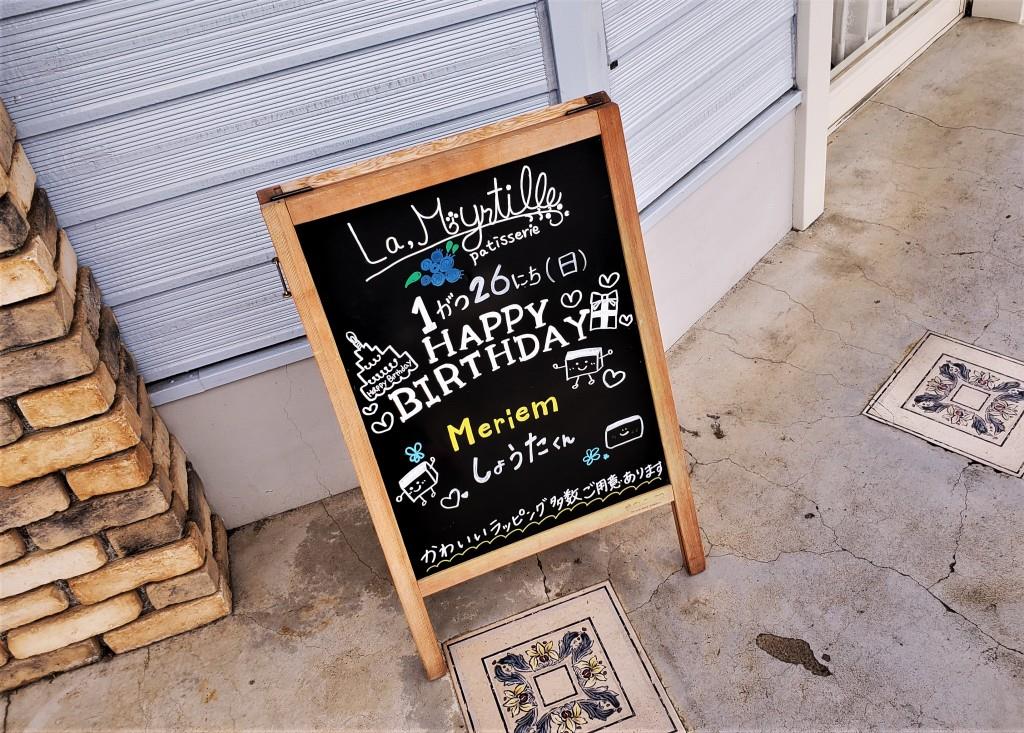 La Myrtille
patisserie
1がつ26にち(日)
HAPPY
BIRTHDAY
Happy Birthday
Meriem
しょうたくん
かわいいラッピング多数ご用意あります